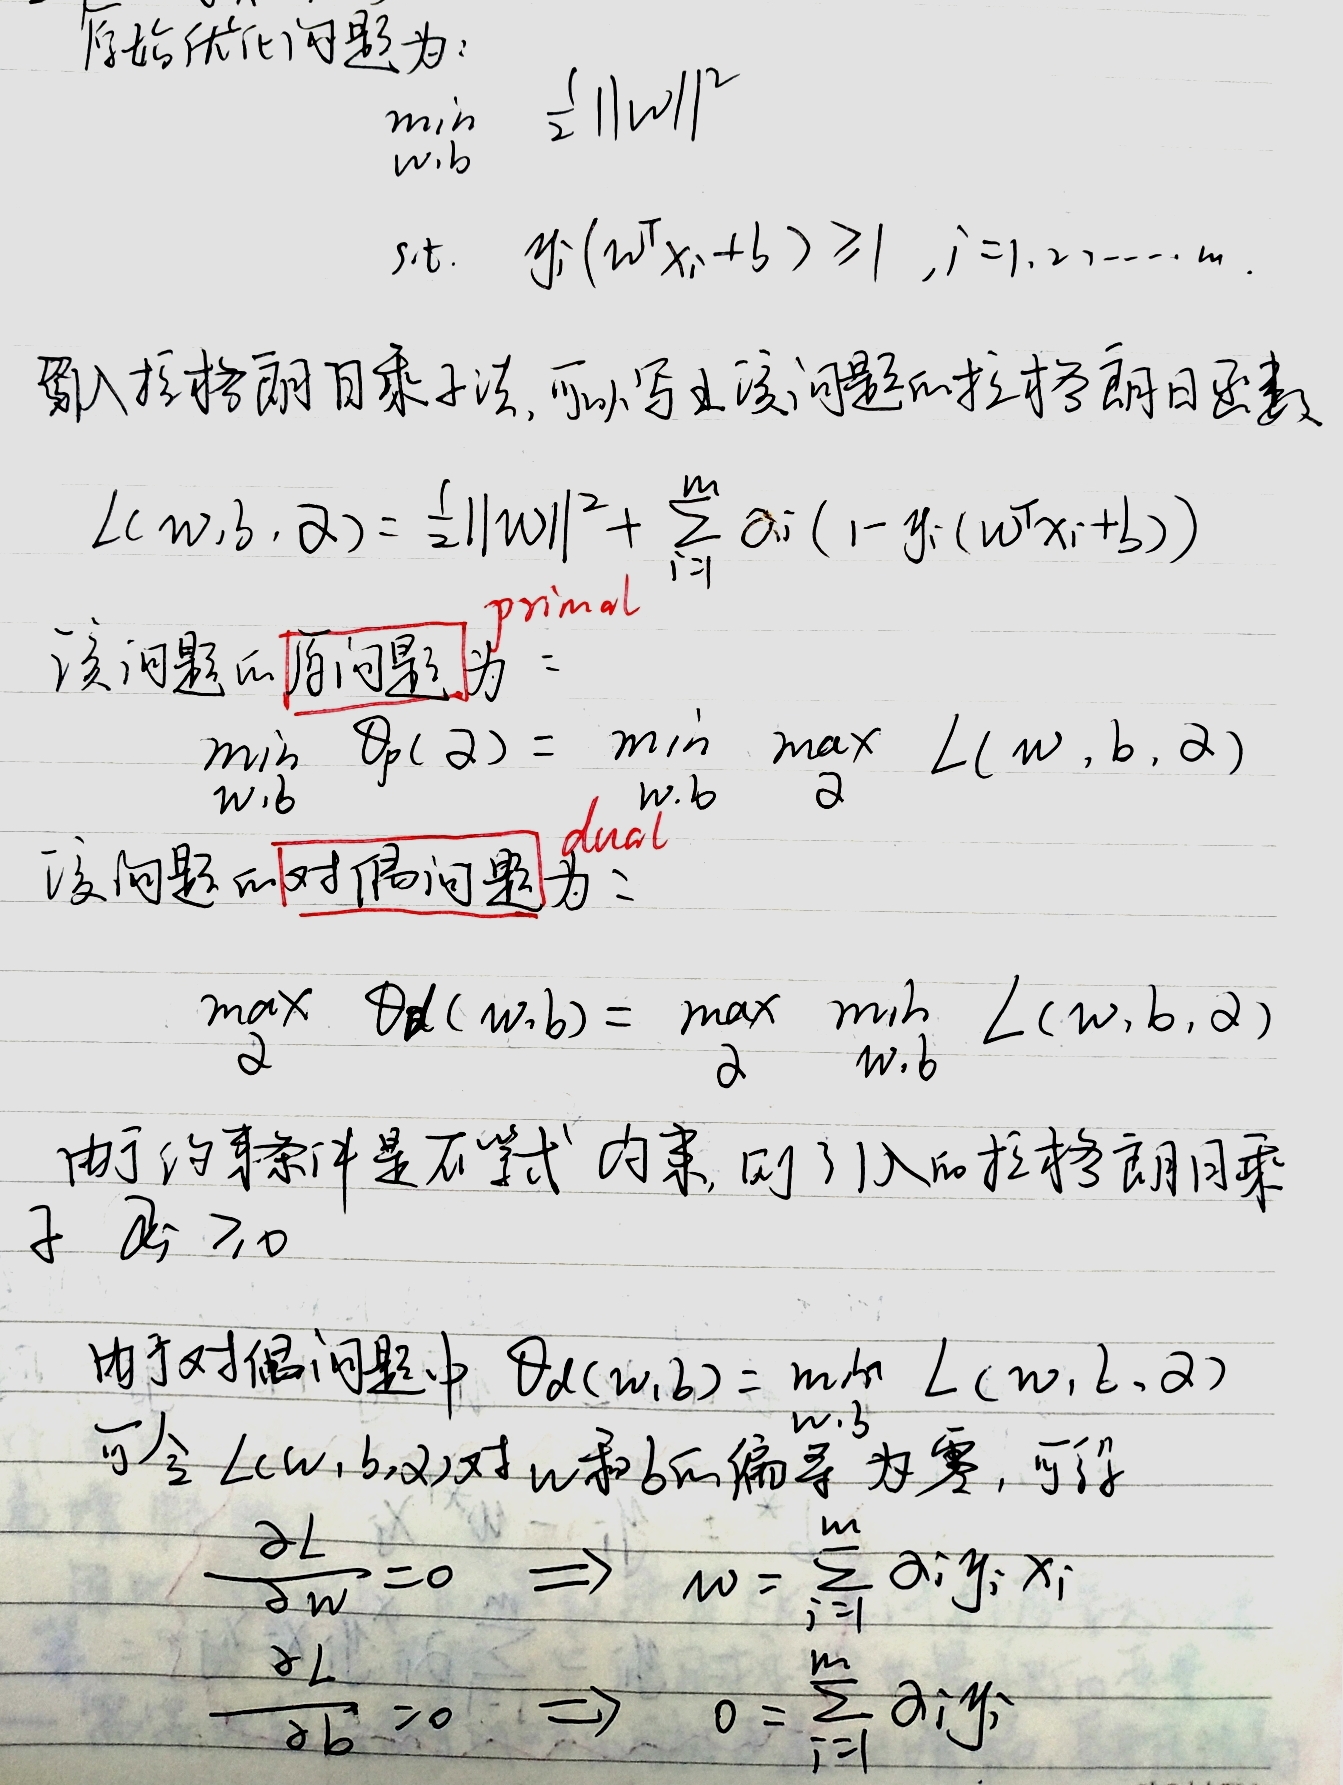 原始优化问题为:
min 1/2 ||w||²
w,b
s.t. yi(wᵀxi+b) ≥ 1 , i=1,2,……m.
引入拉格朗日乘子法,可以写出该问题的拉格朗日函数
L(w,b,α) = 1/2||w||² + Σ_{i=1}^{m} αi (1- yi(wᵀxi+b))
primal
该问题的原问题为:
min θp(α) = min max L(w,b,α)
w,b w,b α
dual
该问题的对偶问题为:
max θd(w,b) = max min L(w,b,α)
α α w,b
由于约束条件是不等式约束,则引入的拉格朗日乘
子 αi ≥0
由于对偶问题中 θd(w,b) = min L(w,b,α)
w,b
可令L(w,b,α)对w和b的偏导为零,可得
∂L/∂w =0 ⟹ w = Σ_{i=1}^{m} αi yi xi
∂L/∂b =0 ⟹ 0 = Σ_{i=1}^{m} αi yi